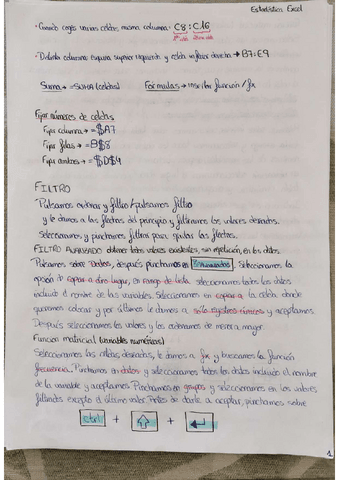 Estadística Excel
· Cuando cojo varias celdas, misma columna: C8:C16
· Distinta columna: esquina superior izquierda y celda inferior derecha → B7:E9
Suma → =SUMA (celdas) Fórmulas → insertar función / fx
Fijar números de celdas
Fijar columna → =$A7
Fijar filas → =B$8
Fijar ambas → =$D$4
FILTRO
Pulsamos ordenar y filtro / pulsamos filtro
y le damos a las flechas del principio y filtramos los valores deseados.
Seleccionamos y pinchamos filtros para quitar las flechas.
FILTRO AVANZADO obtener todos valores existentes, sin repetición, en los datos
Pulsamos sobre Datos, después pinchamos en Avanzadas. Seleccionamos la
opción de copiar a otro lugar, en rango de lista seleccionamos todos los datos
incluido el nombre de las variables. Seleccionamos en copiar a la celda donde
queramos colocar y por último le damos a sólo registros únicos y aceptamos.
Después seleccionamos los valores y los ordenamos de menor a mayor.
Funcion matricial (variables numéricas)
Seleccionamos las celdas deseadas, le damos a fx y buscamos la función
frecuencia. Pinchamos en datos y seleccionamos todos los datos incluido el nombre
de la variable y aceptamos. Pinchamos en grupos y seleccionamos en los valores
filtrados excepto el último valor. Antes de darle a aceptar, pinchamos sobre
ctrl + ⇧ + ↵
1